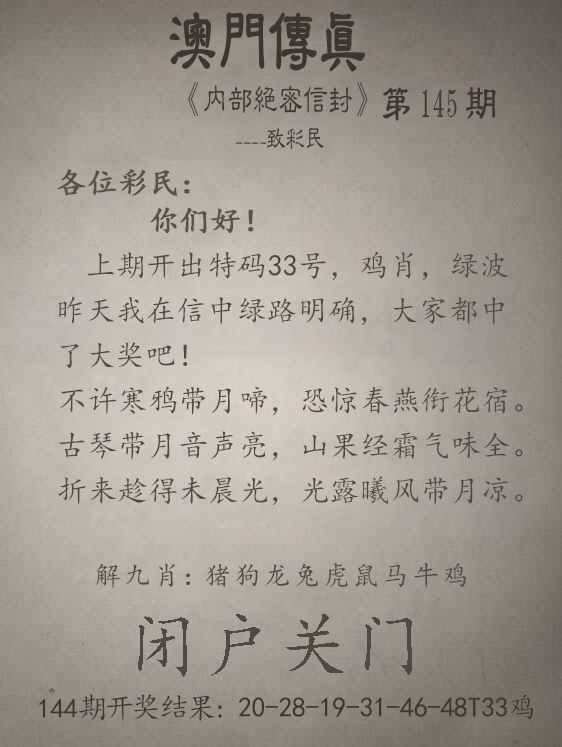 澳門傳眞
《内部絕密信封》第145期
----致彩民
各位彩民：
你们好！
上期开出特码33号，鸡肖，绿波
昨天我在信中绿路明确，大家都中
了大奖吧！
不许寒鸦带月啼，恐惊春燕衔花宿。
古琴带月音声亮，山果经霜气味全。
折来趁得未晨光，光露曦风带月凉。
解九肖：猪狗龙兔虎鼠马牛鸡
闭户关门
144期开奖结果：20-28-19-31-46-48T33鸡